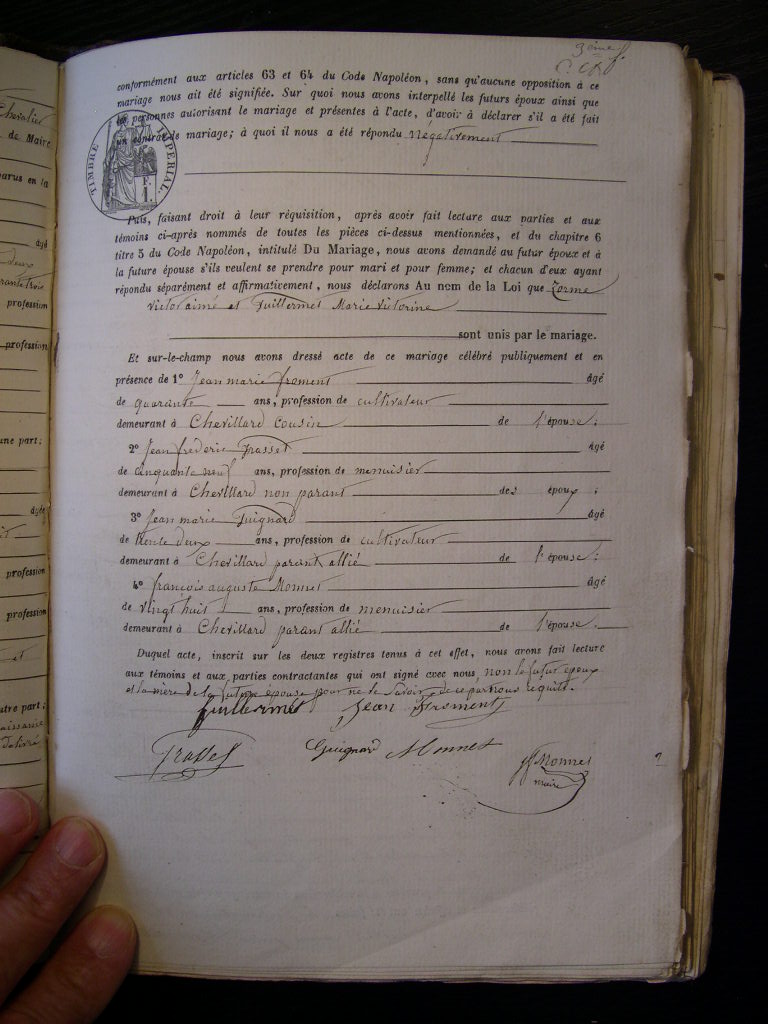 3ème
conformément aux articles 63 et 64 du Code Napoléon, sans qu'aucune opposition à ce
mariage nous ait été signifiée. Sur quoi nous avons interpellé les futurs époux ainsi que
les personnes autorisant le mariage et présentes à l'acte, d'avoir à déclarer s'il a été fait
un contrat de mariage; à quoi il nous a été répondu négativement
TIMBRE IMPERIAL.
F.
1.
Puis, faisant droit à leur réquisition, après avoir fait lecture aux parties et aux
témoins ci-après nommés de toutes les pièces ci-dessus mentionnées, et du chapitre 6
titre 5 du Code Napoléon, intitulé Du Mariage, nous avons demandé au futur époux et à
la future épouse s'ils veulent se prendre pour mari et pour femme; et chacun d'eux ayant
répondu séparément et affirmativement, nous déclarons Au nom de la Loi que Zorme
victor aimé et Guillermet Marie Victorine
sont unis par le mariage.
Et sur-le-champ nous avons dressé acte de ce mariage célébré publiquement et en
présence de 1º Jean marie froment âgé
de quarante ans, profession de cultivateur
demeurant à Chevillard cousin de l'épouse;
2º Jean frederic Grasset âgé
de cinquante neuf ans, profession de menuisier
demeurant à Chevillard non parant des époux;
3º Jean marie Guignard âgé
de trente deux ans, profession de cultivateur
demeurant à Chevillard parant allié de l'épouse;
4º françois auguste Monnet âgé
de vingt huit ans, profession de menuisier
demeurant à Chevillard parant allié de l'épouse.
Duquel acte, inscrit sur les deux registres tenus à cet effet, nous avons fait lecture
aux témoins et aux parties contractantes qui ont signé avec nous non le futur époux
et la mère de la future épouse pour ne le savoir de ce par nous requis.
Guillermet Jean Froment
Grasset Guignard Monnet
Monnet
maire
Chevalier
de Maire
parus en la
âgé
deux
profession
profession
une part;
âgé
profession
profession
et
utre part;
naissance
délivré